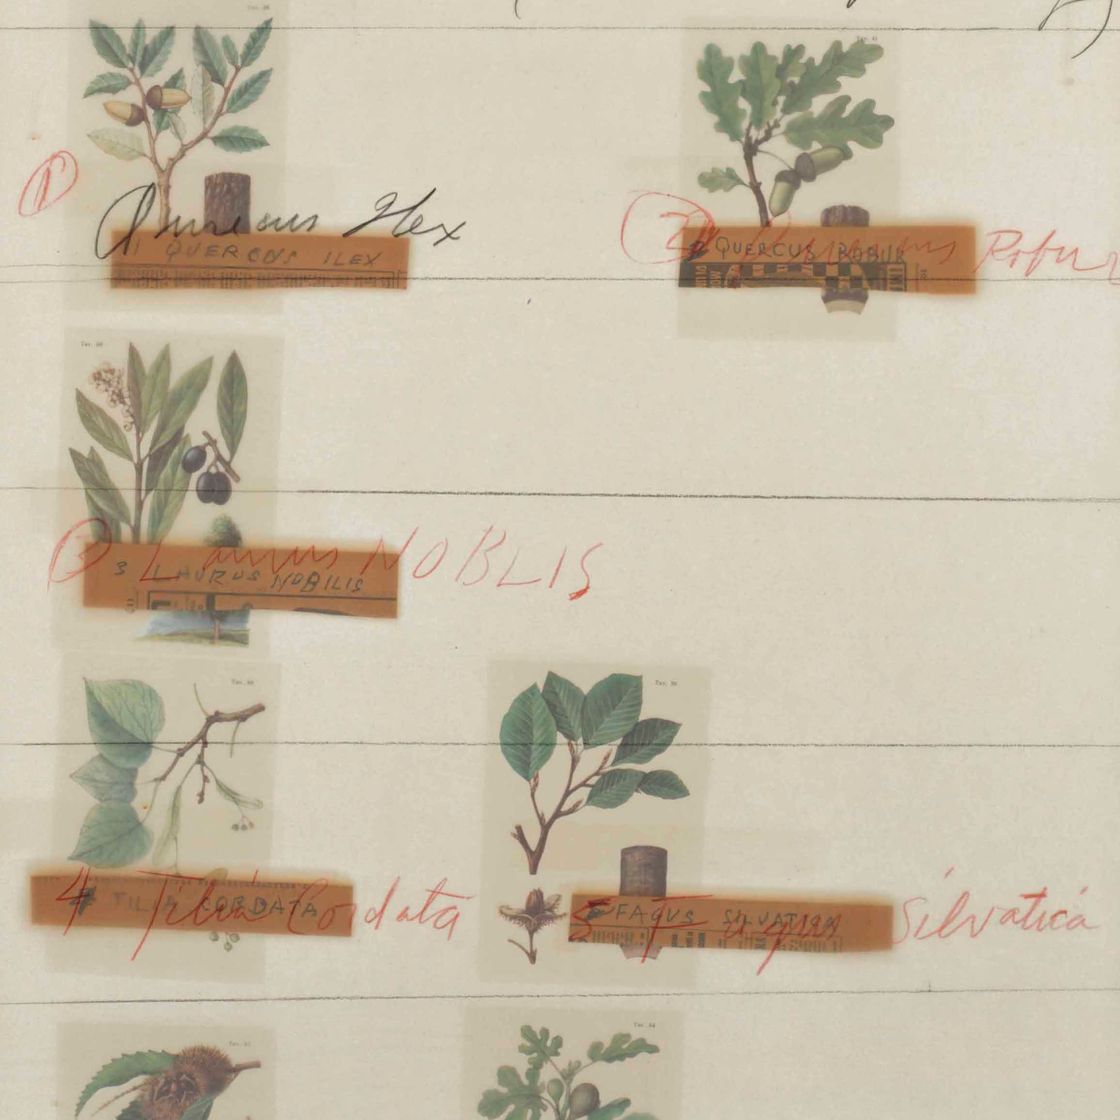 1
Quercus Ilex
1 QUERCUS ILEX
2 Quercus Robur
QUERCUS ROBUR
3 Laurus NOBLIS
3 LAURUS NOBILIS
4 Tilia Cordata
TILIA CORDATA
5 Fagus Silvatica
FAGUS SILVATICA